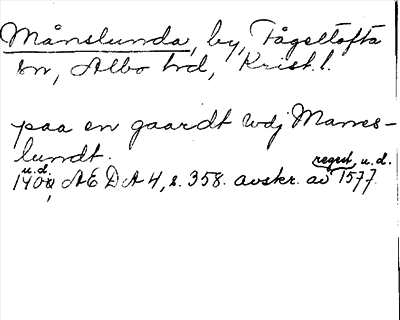 Månslunda, by, Fågeltofta
sn, Albo hd, Krist. l.
paa en gaardt udj Manes-
lundt.
u.d. regest, u.d.
1400, AEDA 4, s. 358. avskr. av 1577.